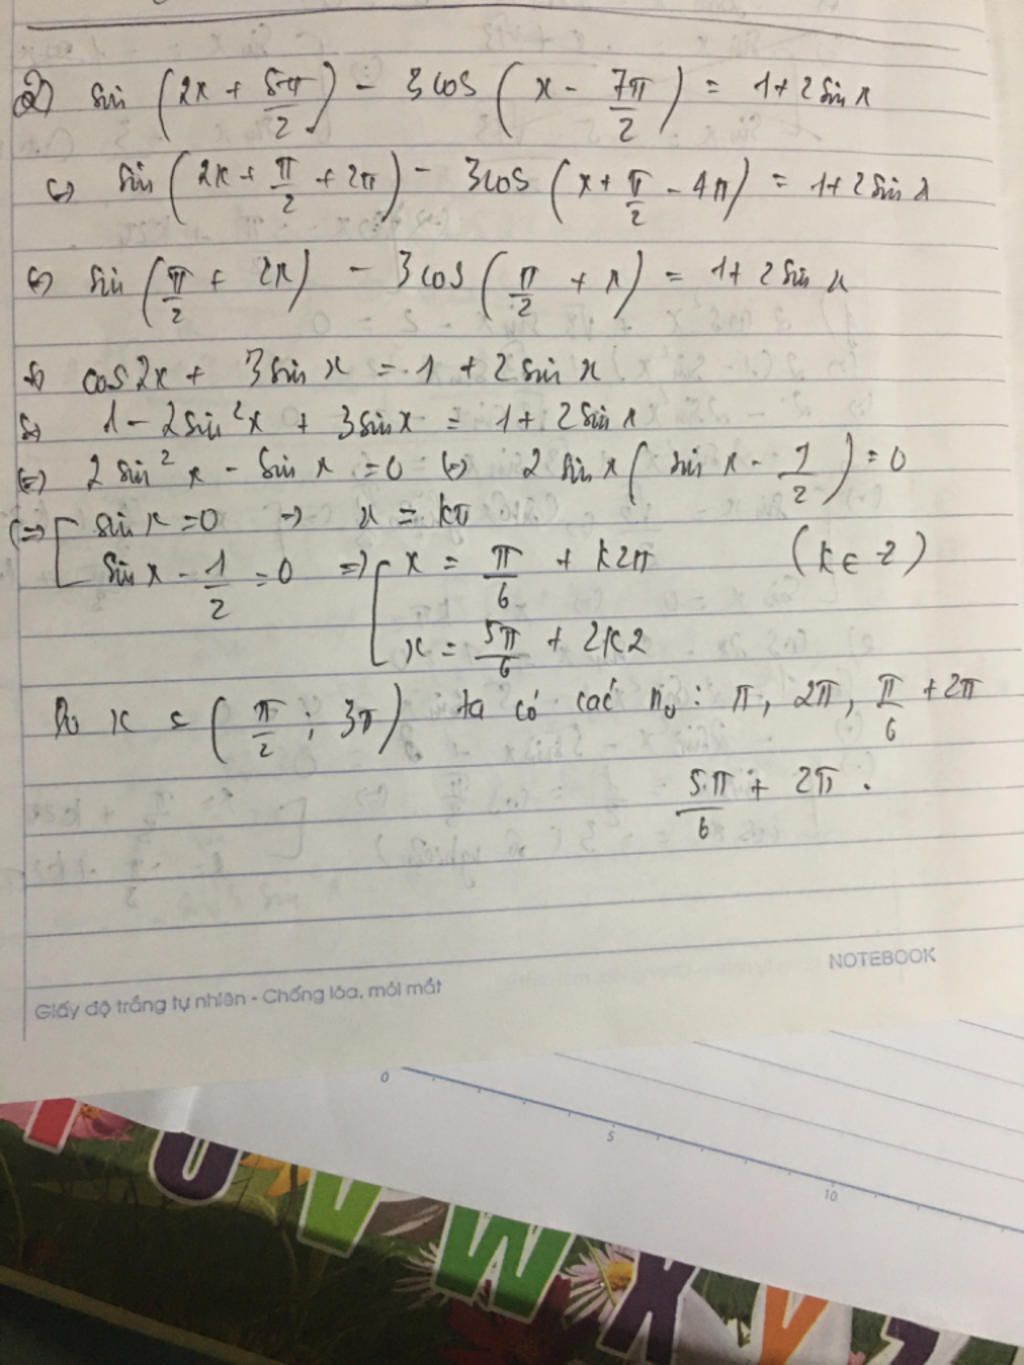 2) sin (2x + 5π/2) - 3cos (x - 7π/2) = 1+2sin x
<=> sin (2x + π/2 + 2π) - 3cos (x + π/2 - 4π) = 1+2sin x
<=> sin (π/2 + 2x) - 3cos (π/2 + x) = 1+2sin x
<=> cos2x + 3sin x = 1 + 2sin x
<=> 1 - 2sin²x + 3sinx = 1+2sin x
<=> 2sin²x - sin x = 0 <=> 2 sin x (sin x - 1/2) = 0
<=> [ sin x = 0 => x = kπ
sin x - 1/2 = 0 => [ x = π/6 + k2π (k ∈ Z)
x = 5π/6 + 2k2
Do x ∈ (π/2 ; 3π) ta có các no : π, 2π, π/6 + 2π
5π/6 + 2π .
NOTEBOOK
Giấy độ trắng tự nhiên - Chống lóa, mỏi mắt
0
5
10